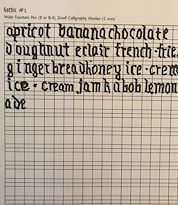 Gothic #1
Wide Fountain Pen (B or B-fl), Small Calligraphy Marker (2 mm)
apricot banana chocolate
doughnut eclair french-frie
gingerbread honey ice-crem
ice-cream jam kabob lemon
ade